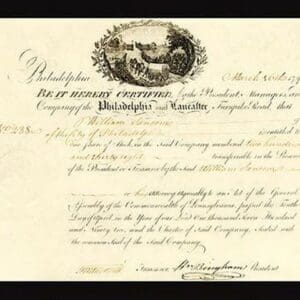 Philadelphia March 26th 179
BE IT HEREBY CERTIFIED by the President Managers and
Company of the Philadelphia and Lancaster Turnpike Road that
William Sansom
of the City of Philadelphia is entitled
One Share of Stock in the said Company numbered Two hundred
and thirty eight transferable in the Presence
of the President or Treasurer by the said William Sansom
or his Attorney Agreeably to an Act of the General
Assembly of the Commonwealth of Pennsylvania passed the Ninth
Day of April in the Year of our Lord One thousand Seven Hundred
and Ninety two, and the Charter of said Company, Sealed with
the common Seal of the Said Company.
Treasurer Wm Bingham President